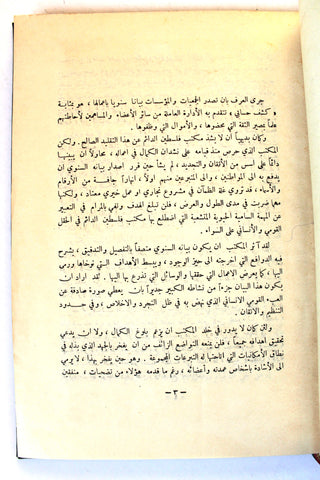 جرى العرف بان تصدر الجمعيات والمؤسسات بيانا سنويا باعمالها ، هو بمثابة
« كشف حسابي » تتقدم به الادارة العاملة من سائر الأعضاء والمساهمين لأحاطتهم
علماً بمصير الثقة التي محضوها ، والأموال التي وظفوها .
وكان بديهياً أن لا يشذ مكتب فلسطين الدائم عن هذا التقليد الصالح . ولكن
المكتب الذي حرص منذ قيامه على نشدان الكمال في اعماله ، محاولاً أن يبنيها
دائماً على اسس من الأتقان والتجديد ، لم يشأ حين قرر اصدار بيانه السنوي أن
يدفع به الى المواطنين ، والى المتبرعين منهم اولا ، انهاراً جافة من الأرقام
والأسماء ، قد تروي غلة الظمآن في مشروع تجاري او عمل خيري معتاد ، ولكنها
مهما ضربت في مدى الطول والعرض ، فلن تبلغ الهدف وتفي بالمرام في التعبير
عن المهمة السامية الحيوية المتشعبة التي اضطلع بها مكتب فلسطين الدائم في الحقل
القومي والأنساني على السواء .
لقد آثر المكتب ان يكون بيانه السنوي متصفاً بالتفصيل والتدقيق ، يشرح
فيه الدوافع التي اخرجته الى حيز الوجود ، ويبسط الأهداف التي توخاها ورمى
اليها ، كما يعرض الاعمال التي حققها والوسائل التي تذرع بها اليها . لقد اراد ان
يكون هذا البيان جزءاً من نشاطه الكبير جديراً بان يعطي صورة صادقة عن
العبء القومي الانساني الذي نهض به في ظل التجرد والاخلاص ، وفي حدود
التنظيم والاتقان .
ولئن كان لا يدور في خلد المكتب ان يزعم بلوغ الكمال ، ولا ان يدعي
تحقيق اهدافه جميعاً ، فلن يمنعه التواضع الزائف من أن يفخر بالجهد الذي بذله في
نطاق الأمكانيات التي اتاحتها له التبرعات المجموعة . وهو حين يفخر بهذا ، لا يرمي
الى الأشادة باشخاص عمدته وأعضائه ، رغم ما قدمه هؤلاء من تضحيات ، منفقين
— ٣ —